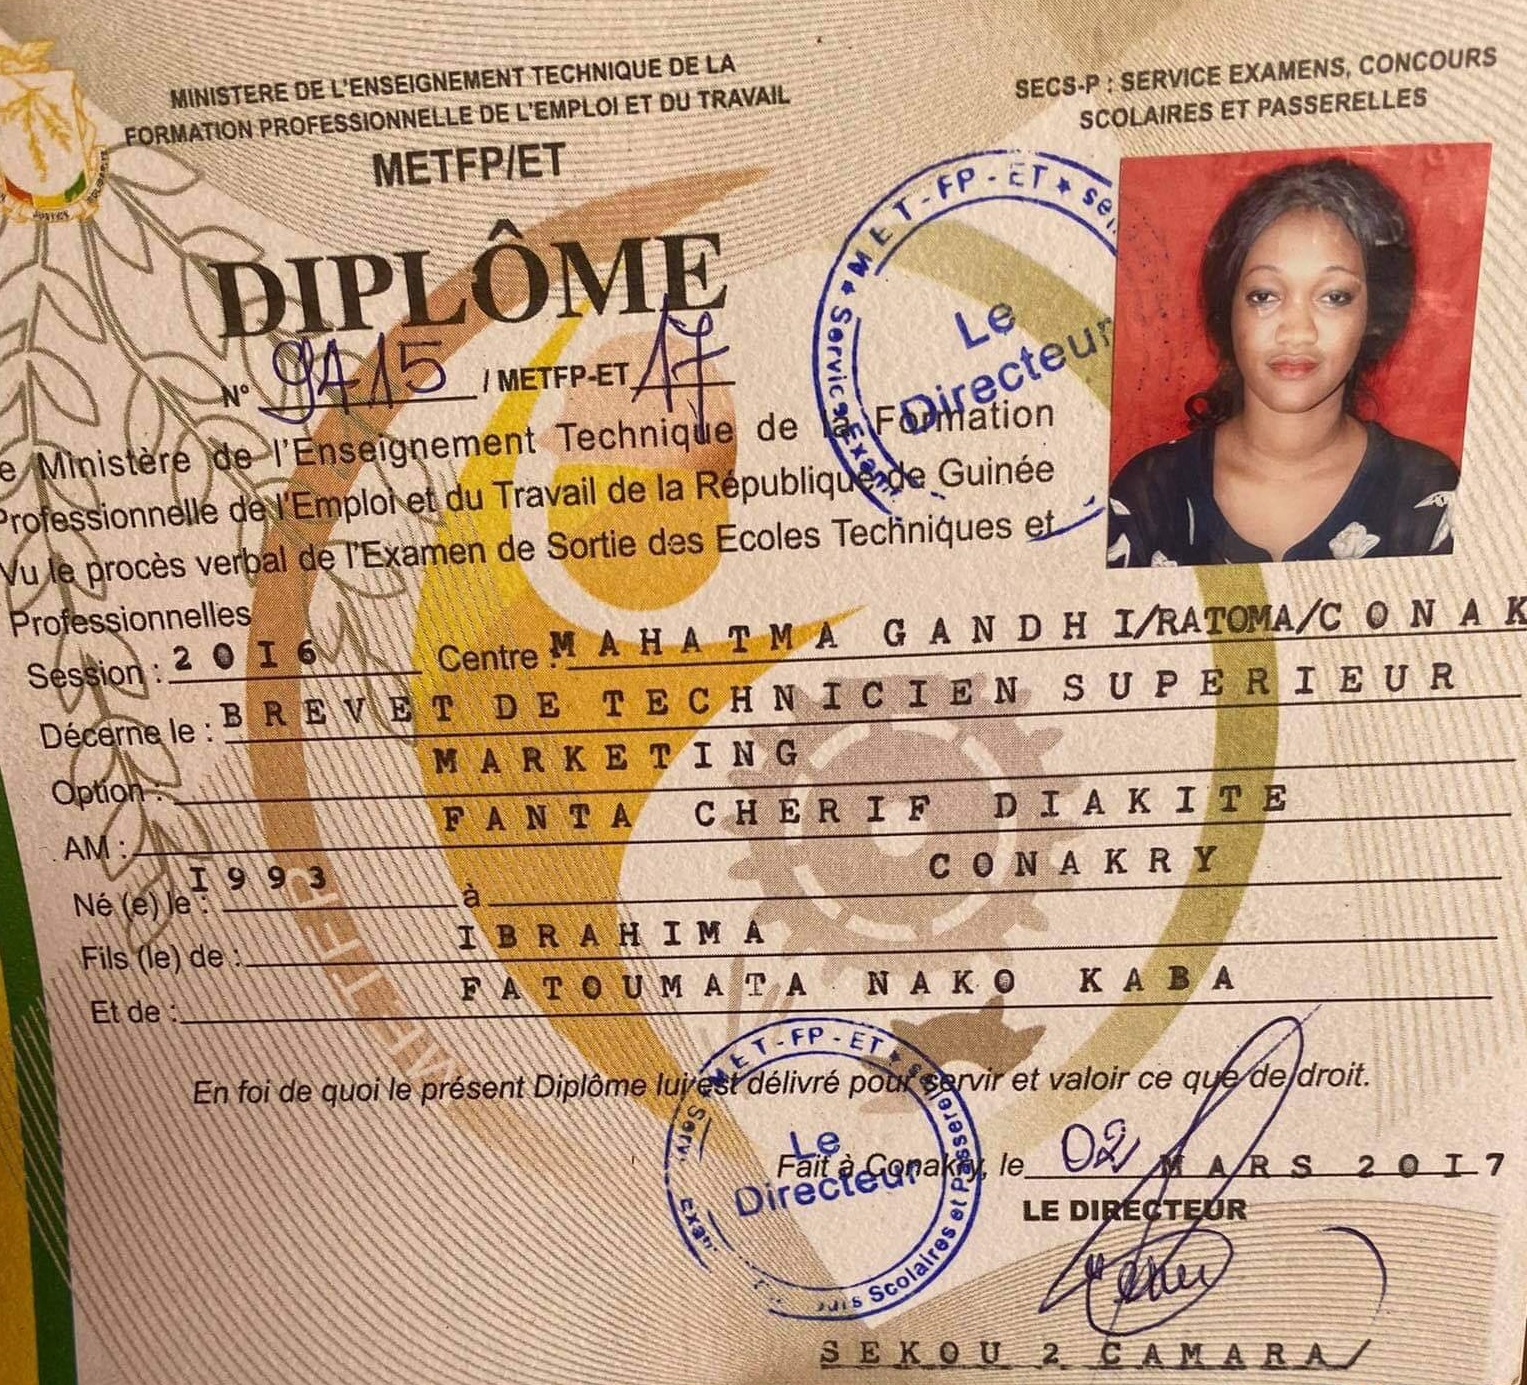 MINISTERE DE L'ENSEIGNEMENT TECHNIQUE DE LA
FORMATION PROFESSIONNELLE DE L'EMPLOI ET DU TRAVAIL
METFP/ET
SECS-P : SERVICE EXAMENS, CONCOURS
SCOLAIRES ET PASSERELLES
MET-FP-ET
Le
Directeur
DIPLÔME
N° 9415 / METFP-ET 17
e Ministère de l'Enseignement Technique de la Formation
Professionnelle de l'Emploi et du Travail de la République de Guinée
Vu le procès verbal de l'Examen de Sortie des Ecoles Techniques et
Professionnelles
Session : 20I6 Centre : MAHATMA GANDHI/RATOMA/CONAK
Décerne le : BREVET DE TECHNICIEN SUPERIEUR
Option : MARKETING
AM : FANTA CHERIF DIAKITE
Né (e) le : I993 à CONAKRY
Fils (le) de : IBRAHIMA
Et de : FATOUMATA NAKO KABA
En foi de quoi le présent Diplôme lui est délivré pour servir et valoir ce que de droit.
MET-FP-ET
Scolaires et Passerel
Le
Directeur
Fait à Conakry, le 02 MARS 20I7
LE DIRECTEUR
SEKOU 2 CAMARA/